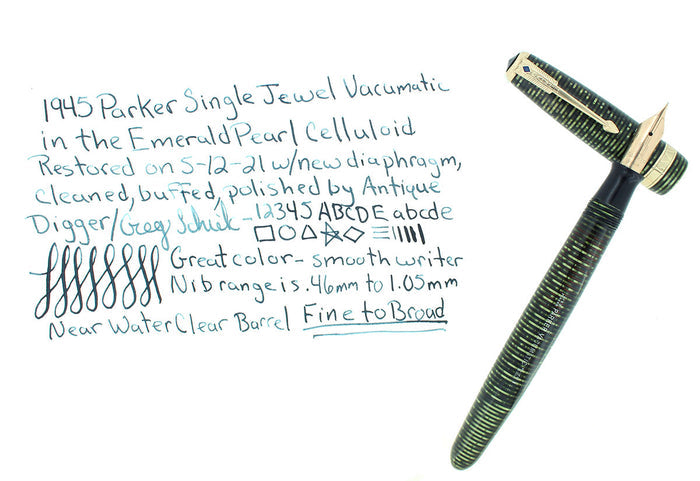 1945 Parker Single Jewel Vacumatic
in the Emerald Pearl Celluloid
Restored on 5-12-21 w/new diaphragm,
cleaned, buffed, polished by Antique
Digger/Greg - 12345 ABCDE abcde
Great color - smooth writer
Nib range is .46mm to 1.05mm
Near Water Clear Barrel Fine to Broad